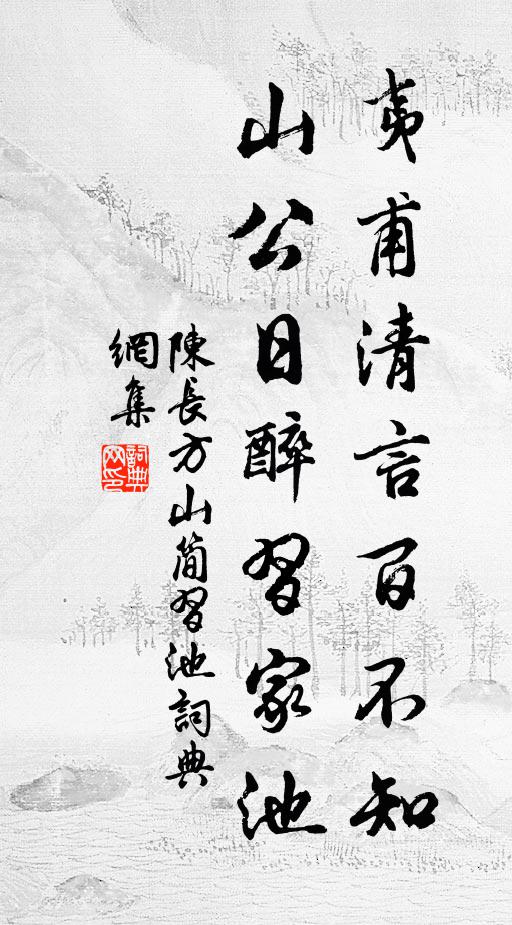 夷甫清言百不知
山公日醉習家池
陳長方山簡習池詞典
網集
詞典
网印